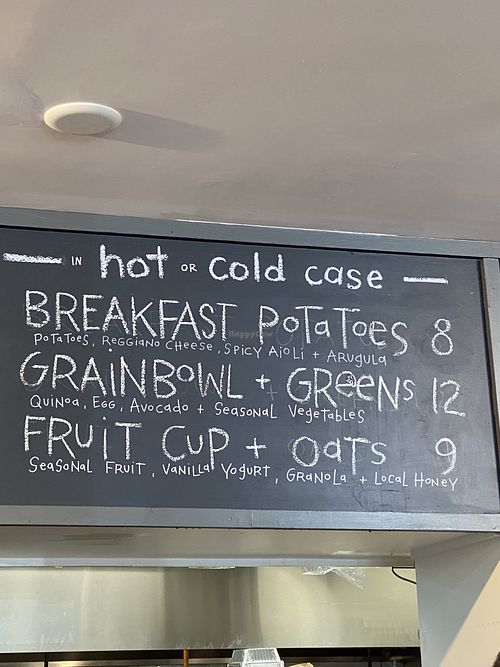 — IN hot OR cold case —
BREAKFAST POTATOES 8
POTATOES, REGGIANO CHEESE, SPICY AIOLI + ARUGULA
GRAINBOWL + GREENS 12
QUINOA, EGG, AVOCADO + SEASONAL VEGETABLES
FRUIT CUP + OATS 9
SEASONAL FRUIT, VANILLA YOGURT, GRANOLA + LOCAL HONEY